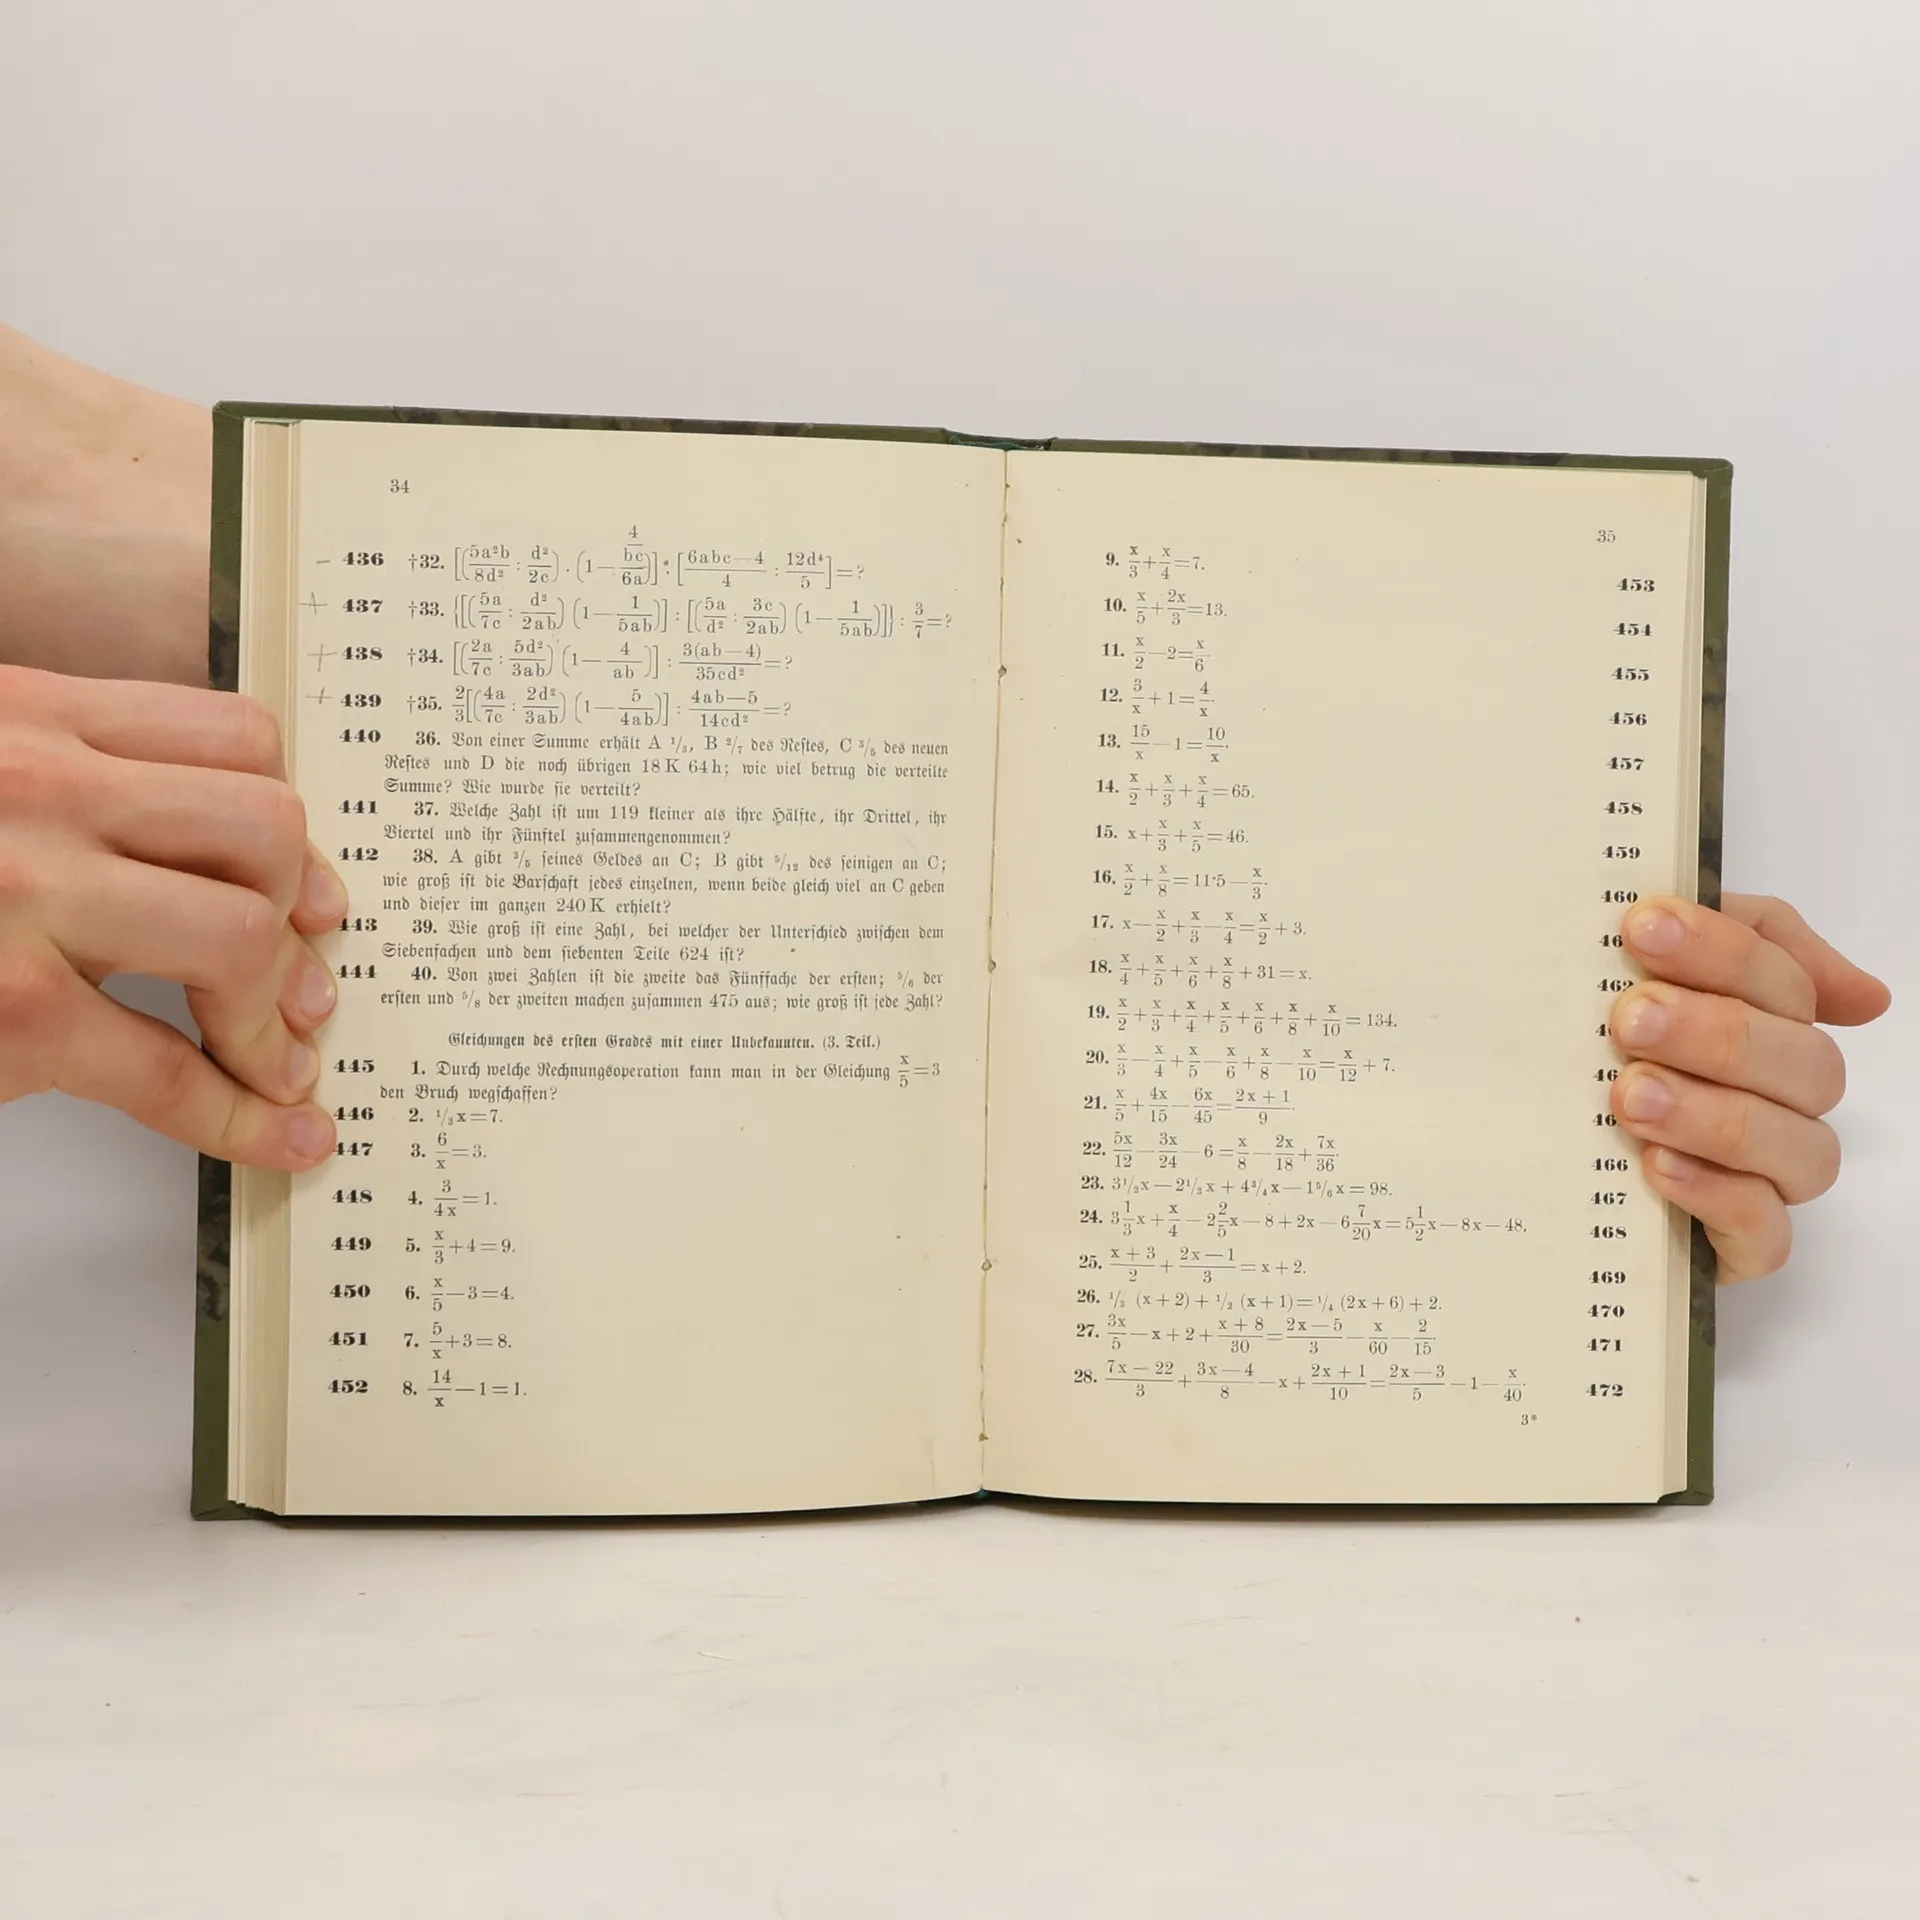 34
436 †32. [(5a²b/8d² : d²/2c) . (1 — (4/bc)/6a)] : [(6abc — 4)/4 : 12d⁴/5] = ?
437 †33. {[(5a/7c : d²/2ab) (1 — 1/5ab)] : [(5a/d² : 3c/2ab) (1 — 1/5ab)]} : 3/7 = ?
438 †34. [(2a/7c : 5d²/3ab) (1 — 4/ab)] : 3(ab — 4)/35cd² = ?
439 †35. 2/3[(4a/7c : 2d²/3ab) (1 — 5/4ab)] : (4ab — 5)/14cd² = ?
440 36. Von einer Summe erhält A 1/3, B 2/7 des Restes, C 3/5 des neuen
Restes und D die noch übrigen 18 K 64 h; wie viel betrug die verteilte
Summe? Wie wurde sie verteilt?
441 37. Welche Zahl ist um 119 kleiner als ihre Hälfte, ihr Drittel, ihr
Viertel und ihr Fünftel zusammengenommen?
442 38. A gibt 3/5 seines Geldes an C; B gibt 5/12 des seinigen an C;
wie groß ist die Barschaft jedes einzelnen, wenn beide gleich viel an C geben
und dieser im ganzen 240 K erhielt?
443 39. Wie groß ist eine Zahl, bei welcher der Unterschied zwischen dem
Siebenfachen und dem siebenten Teile 624 ist?
444 40. Von zwei Zahlen ist die zweite das Fünffache der ersten; 5/6 der
ersten und 5/8 der zweiten machen zusammen 475 aus; wie groß ist jede Zahl?
Gleichungen des ersten Grades mit einer Unbekannten. (3. Teil.)
445 1. Durch welche Rechnungsoperation kann man in der Gleichung x/5 = 3
den Bruch wegschaffen?
446 2. 1/3 x = 7.
447 3. 6/x = 3.
448 4. 3/4x = 1.
449 5. x/3 + 4 = 9.
450 6. x/5 — 3 = 4.
451 7. 5/x + 3 = 8.
452 8. 14/x — 1 = 1.
35
9. x/3 + x/4 = 7. 453
10. x/5 + 2x/3 = 13. 454
11. x/2 — 2 = x/6 455
12. 3/x + 1 = 4/x. 456
13. 15/x — 1 = 10/x. 457
14. x/2 + x/3 + x/4 = 65. 458
15. x + x/3 + x/5 = 46. 459
16. x/2 + x/8 = 11·5 — x/3. 460
17. x — x/2 + x/3 — x/4 = x/2 + 3. 46
18. x/4 + x/5 + x/6 + x/8 + 31 = x. 462
19. x/2 + x/3 + x/4 + x/5 + x/6 + x/8 + x/10 = 134. 4
20. x/3 — x/4 + x/5 — x/6 + x/8 — x/10 = x/12 + 7. 46
21. x/5 + 4x/15 — 6x/45 = (2x + 1)/9. 46
22. 5x/12 — 3x/24 — 6 = x/8 — 2x/18 + 7x/36. 466
23. 3 1/2 x — 2 1/3 x + 4 3/4 x — 1 5/6 x = 98. 467
24. 3 1/3 x + x/4 — 2 2/5 x — 8 + 2x — 6 7/20 x = 5 1/2 x — 8x — 48. 468
25. (x + 3)/2 + (2x — 1)/3 = x + 2. 469
26. 1/3 (x + 2) + 1/2 (x + 1) = 1/4 (2x + 6) + 2. 470
27. 3x/5 — x + 2 + (x + 8)/30 = (2x — 5)/3 — x/60 — 2/15. 471
28. (7x — 22)/3 + (3x — 4)/8 — x + (2x + 1)/10 = (2x — 3)/5 — 1 — x/40. 472
3*